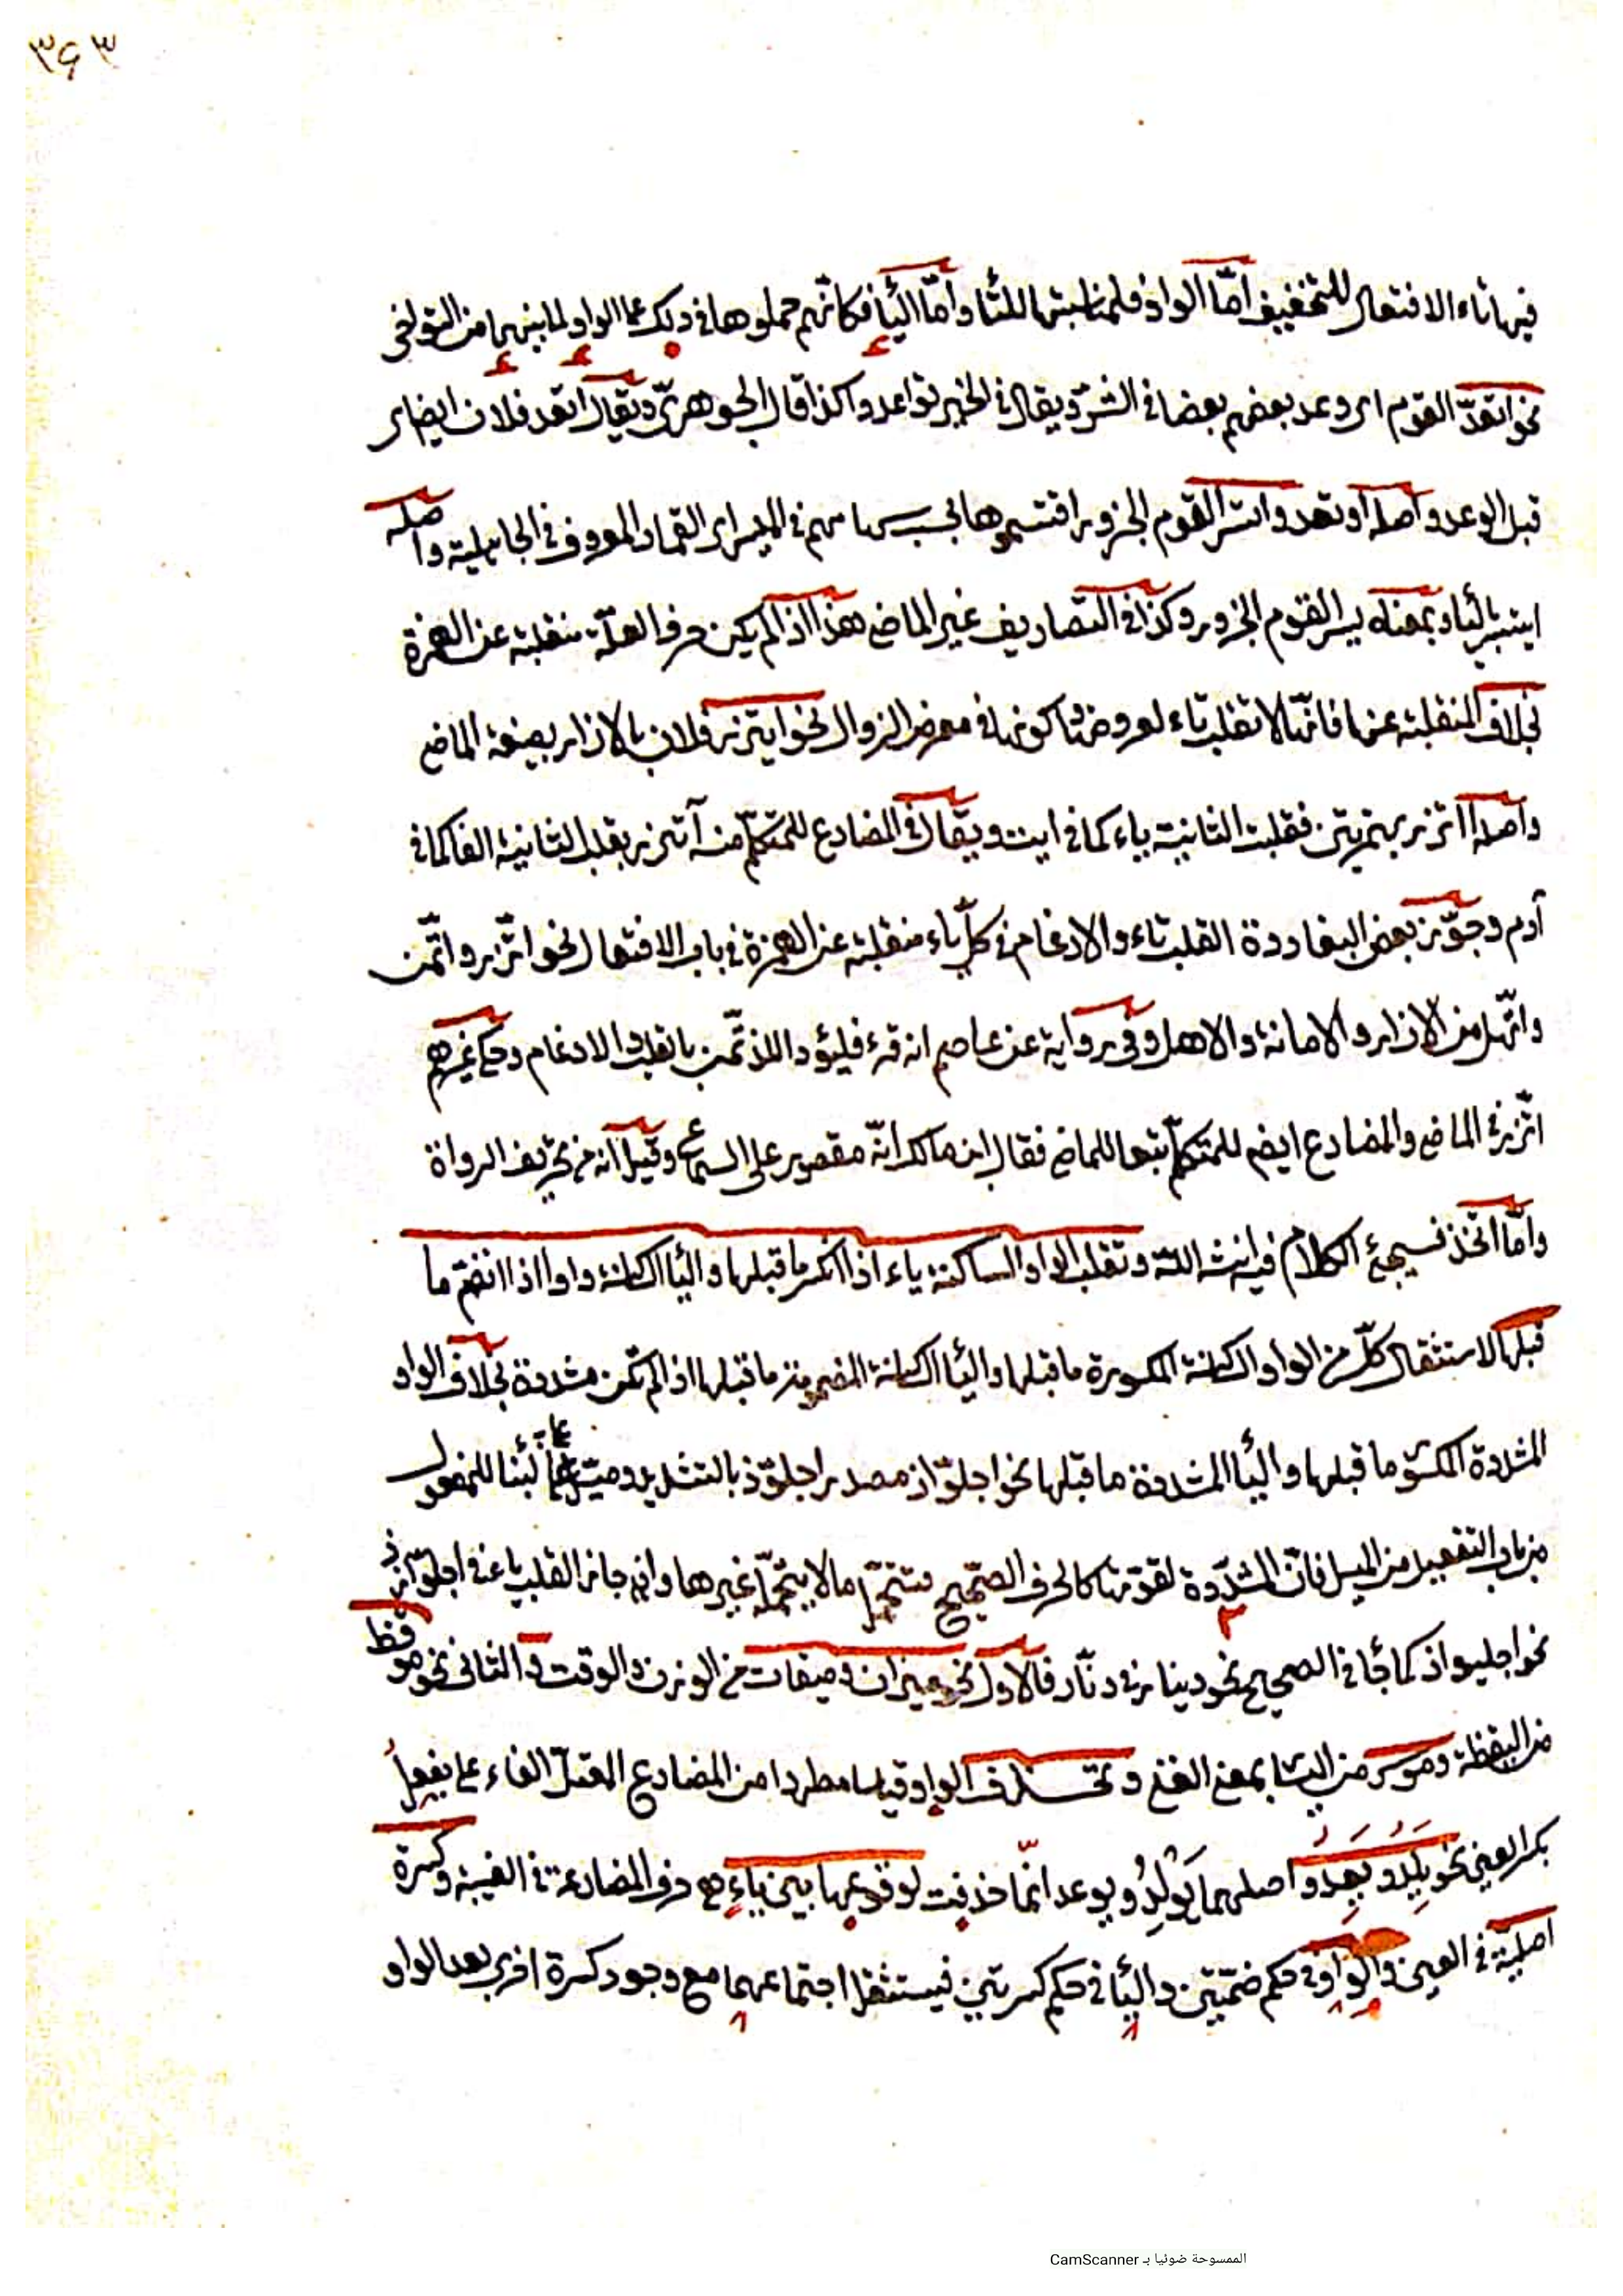 ٣۶٣
فيها تاء الافتعال للتخفيف امّا الواو فلمناسبتها للتا واما اليا فكانّهم حملوها فى ذلك على الواو لما بينهما من التواخى
نحو اتعدّ القوم اى وعد بعضهم بعضا فى الشرّ ويقال فى الخير تواعدوا كذا قال الجوهرىّ ويقال اتعد فلان ايضا اى
قبل الوعد واصله اوتعد واتسر القوم الجزور اقتسموها بحسب سهامهم فى الميسر اى القمار المعروف فى الجاهلية واصله
ايتسر باليا وبمعناه يسر القوم الجزور وكذا فى التصاريف غير الماضى هذا اذا لم يكن حرف العلّة منقلبة عن الهمزة
بخلاف المنقلبة عنها فانّها لا تقلب تاء لعروضها وكونها فى معرض الزوال نحو ايتزر فلان بالازار بصيغة الماضى
واصله اأتزر بهمزتين فقلبت الثانية ياء كما فى ايت ويقال فى المضارع للمتكلّم منه آتزر بقلب الثانية الفا كما فى
آدم وجوّز بعض البغاددة القلب تاء والادغام فى كلّ ياء منقلبة عن الهمزة فى باب الافتعال نحو اتّزر واتّمن
واتّهل من الازار والامانة والاهل وفى رواية عن عاصم انه قرء فليؤد الذتّمن بالقلب والادغام وحكى غيرهم
اتّزر فى الماضى والمضارع ايضم للمتكلّم تبعا للماضى فقال ابن مالك انّه مقصور على السماع وقيل انه من تحريف الرواة
وامّا اتّخذ فسيجئ الكلام فيه انشاء اللّه وتقلب الواو الساكنة ياء اذا انكسر ما قبلها واليا الساكنة واوا اذا انضمّ ما
قبلها لاستثقال كلّ من الواو الساكنة المكسورة ما قبلها واليا الساكنة المضمومة ما قبلها اذا لم تكن مشددة بخلاف الواو
المشددة المكسور ما قبلها واليا المشددة ما قبلها نحو اجلوّاذ مصدر اجلوّذ بالتشديد وميّل على البنا للمفعول
من باب التفعيل من الميل فانّ المشدّدة لقوّتها كالحرف الصحيح تتحمّل ما لا يتحمّل غيرها وان جاز القلب ياء فى اجلوّاذ
نحو اجليواذ كما جا فى الصحيح نحو دينار فى دنّار فالاول نحو ميزان وميقات من الوزن والوقت والثانى نحو موقظ
من اليقظة وموسر من اليسار بمعنى الغنى وتحذف الواو قياسا مطردا من المضارع المعتلّ الفاء على يفعِلُ
بكسر العين نحو يَلِدُ ويَعِدُ واصلهما يَوْلِدُ ويوعد انّما حذفت لوقوعها بين ياءٍ هى حرف المضارعة فى الغيبة وكسرة
اصليّة فى العين والواو فى حكم ضمّتين واليا فى حكم كسرتين فيستثقل اجتماعهما مع وجود كسرة اخرى بعد الواو
الممسوحة ضوئيا بـ CamScanner